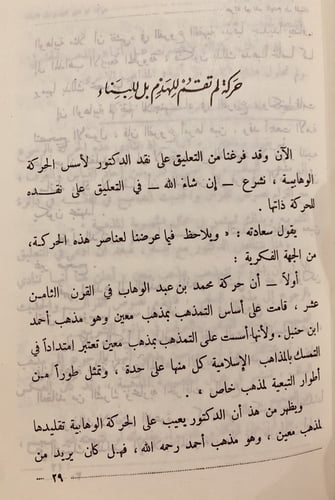 حركة لم تقم للهدم بل للبناء
الآن وقد فرغنا من التعليق على نقد الدكتور لأسس الحركة
الوهابية ، نشرع ــ إن شاء الله ــ في التعليق على نقده
للحركة ذاتها .
يقول سعادته : « ويلاحظ فيما عرضنا لعناصر هذه الحركة،
من الجهة الفكرية :
أولاً ــ أن حركة محمد بن عبد الوهاب في القرن الثامن
عشر ، قامت على أساس التمذهب بمذهب معين وهو مذهب أحمد
ابن حنبل . ولأنها أسست على التمذهب بمذهب معين تعتبر امتداداً في
التمسك بالمذاهب الإسلامية كل منها على حدة ، وتمثل طوراً من
أطوار التبعية لمذهب خاص » .
ويظهر من هذا أن الدكتور يعيب على الحركة الوهابية تقليدها
لمذهب معين ، وهو مذهب أحمد رحمه الله ، فهل كان يريد من
٢٩